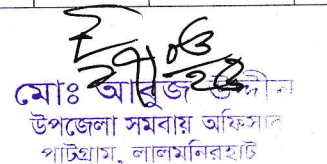 মোঃ আবুজ উদ্দীন
উপজেলা সমবায় অফিসার
পাটগ্রাম, লালমনিরহাট